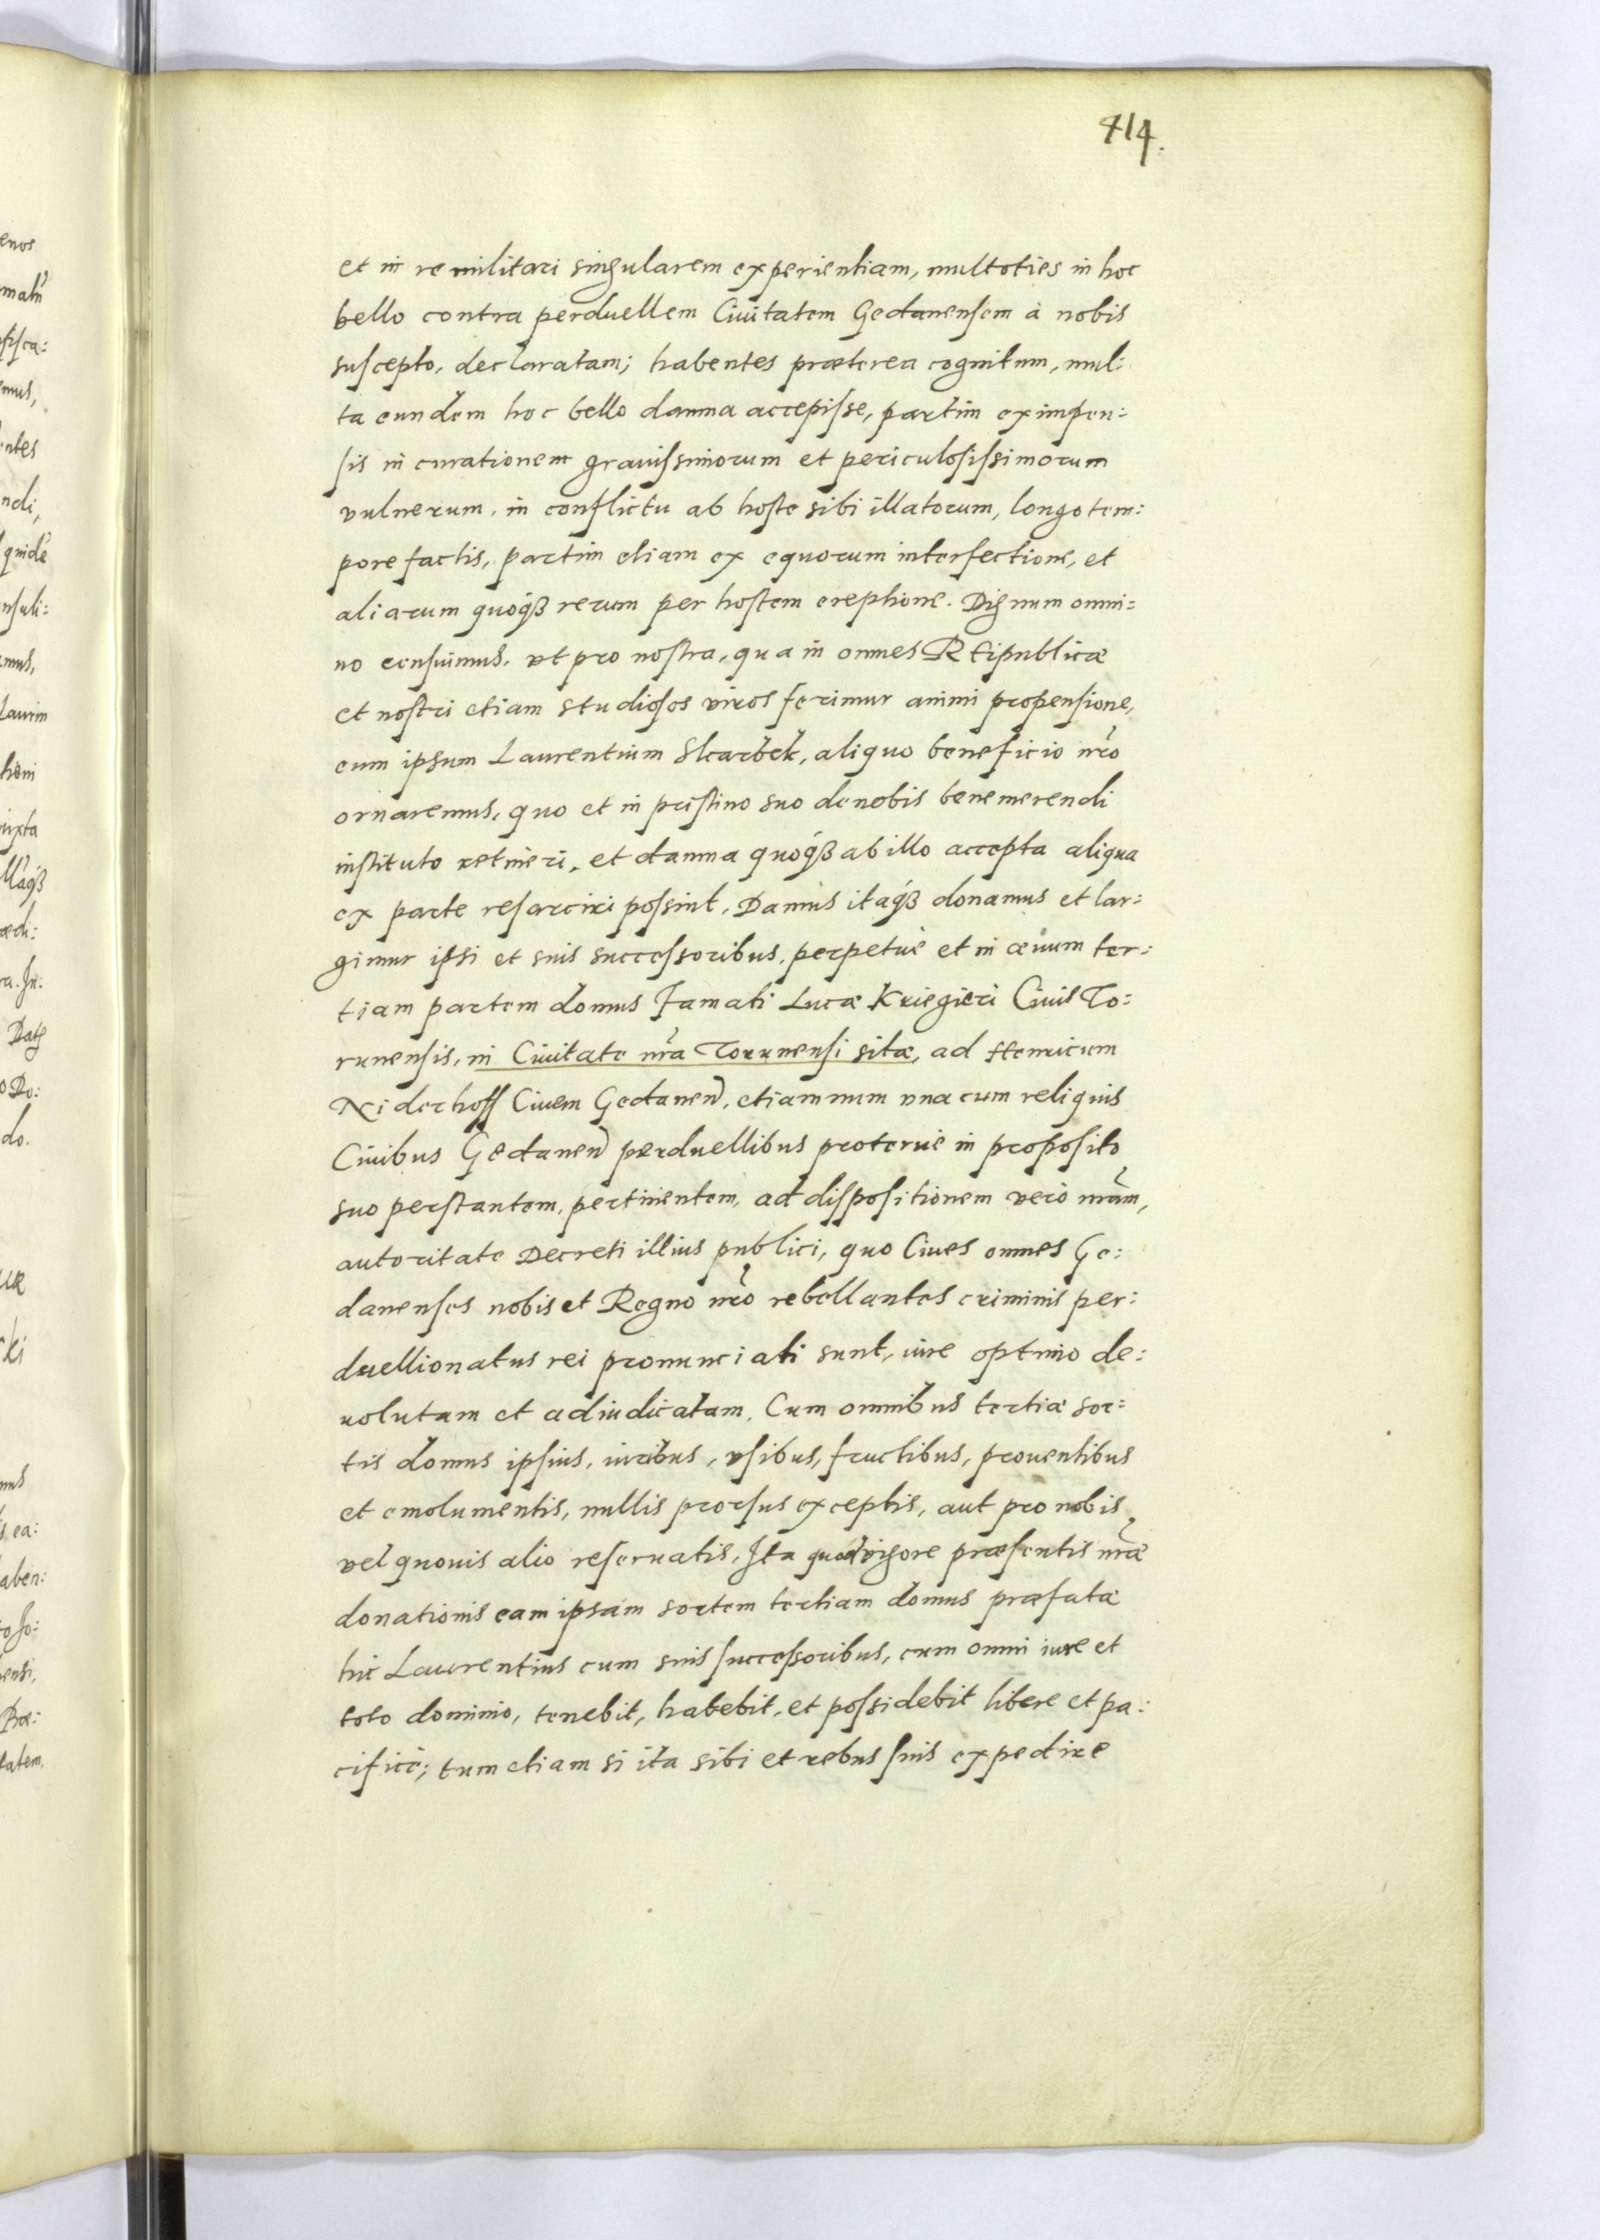 414.
et in re militari singularem experientiam, multoties in hoc
bello contra perduellem Ciuitatem Gedanensem à nobis
suscepto, declaratam; habentes præterea cognitum, mul:
ta eundem hoc bello damna accepisse, partim ex impen:
sis in curationem grauissimorum et periculosissimorum
vulnerum, in conflictu ab hoste sibi illatorum, longo tem:
pore factis, partim etiam ex equorum interfectione, et
aliarum quoqȝ rerum per hostem ereptione. Dignum omni:
no censuimus, vt pro nostra, qua in omnes Reipublicæ
et nostri etiam studiosos viros ferimur animi propensione,
eum ipsum Laurentium Skarbek, aliquo beneficio nr̃o
ornaremus, quo et in pristino suo de nobis benemerendi
instituto retineri, et damna quoqȝ ab illo accepta aliqua
ex parte resarciri possint, Damus itaqȝ donamus et lar:
gimur ipsi et suis successoribus, perpetuè et in æuum ter:
tiam partem domus Famati Lucæ Kriegieri Ciuis To:
runensis, in Ciuitate nr̃a Torunensi sitæ, ad Henricum
Niderhoff Ciuem Gedaneñ, etiamnum vna cum reliquis
Ciuibus Gedaneñ perduellibus proteruè in proposito
suo perstantem, pertinentem, ad dispositionem verò nr̃am,
autoritate Decreti illius publici, quo Ciues omnes Ge:
danenses nobis et Regno nr̃o rebellantes criminis per:
duellionatus rei pronunciati sunt, iure optimo de:
uolutam et adiudicatam. Cum omnibus tertiæ sor:
tis domus ipsius, iuribus, vsibus, fructibus, prouentibus
et emolumentis, nullis prorsus exceptis, aut pro nobis
vel quouis alio reseruatis, Ita quod vigore præsentis nr̃æ
donationis eam ipsam sortem tertiam domus præfatæ
hic Laurentius cum suis successoribus, cum omni iure et
toto dominio, tenebit, habebit, et possidebit libere et pa:
cificè; tum etiam si ita sibi et rebus suis expedire